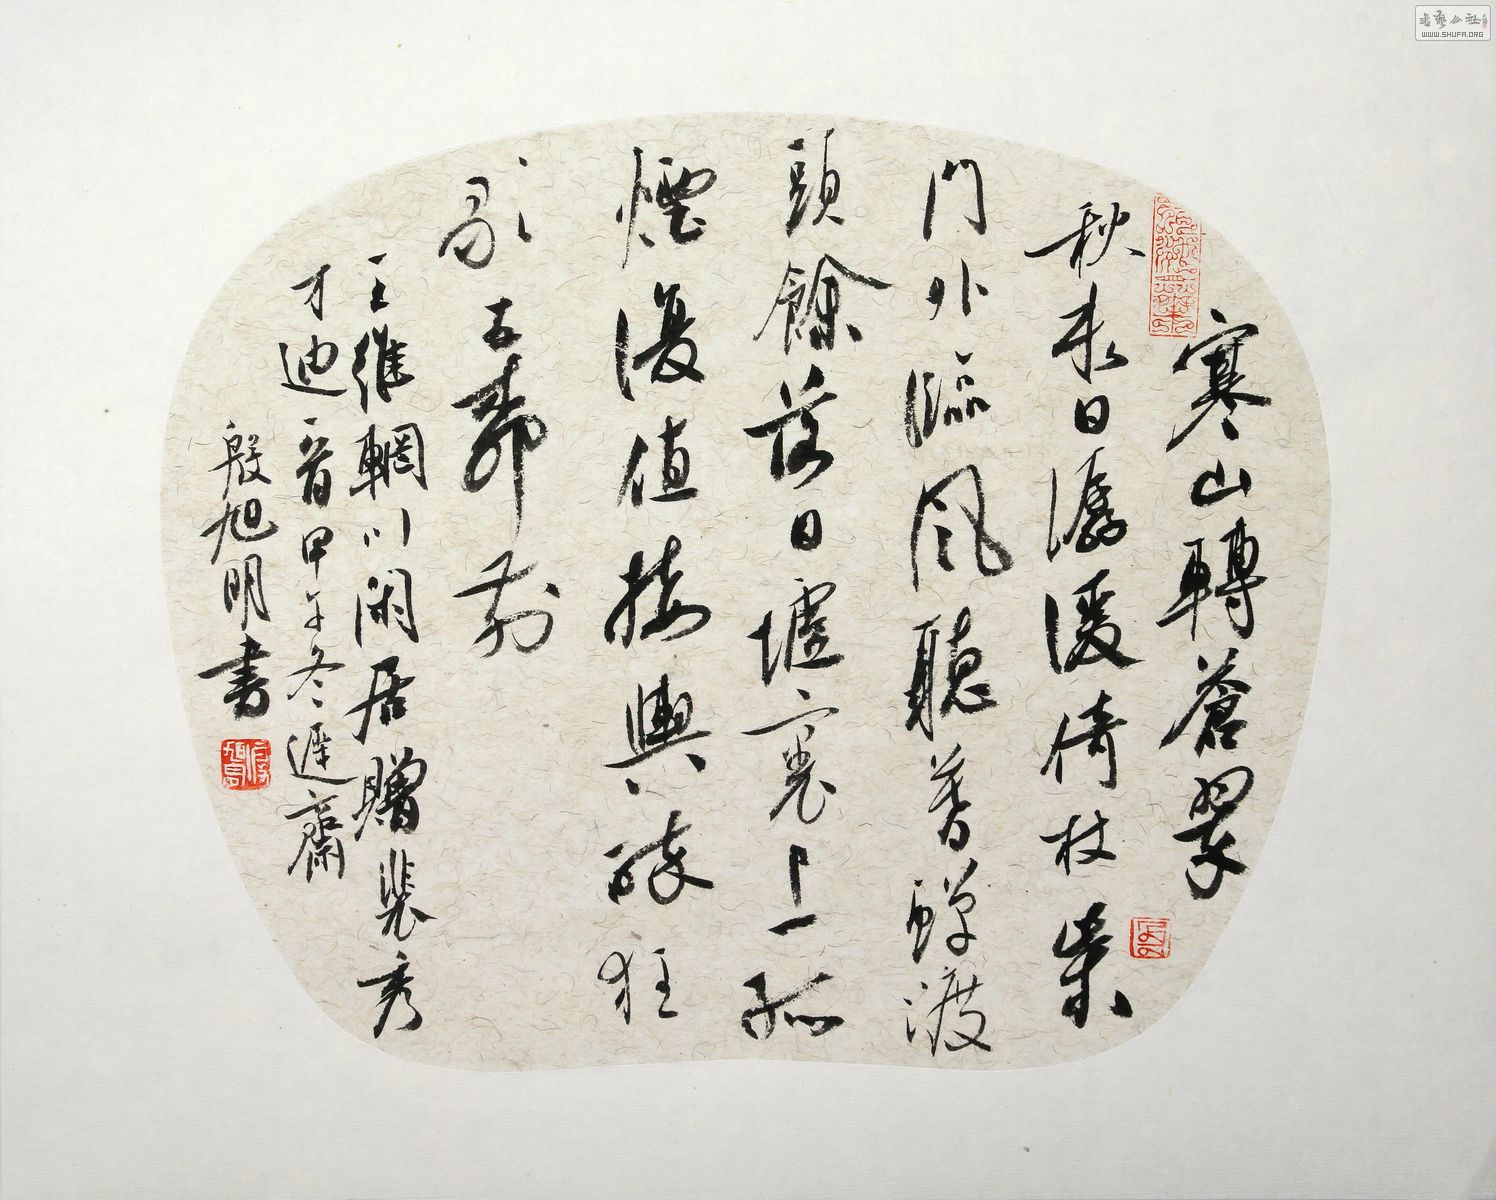 寒山轉蒼翠
秋来日潺湲倚杖柴
門外臨風聽暮蟬渡
頭餘落日墟裏上孤
煙復值接輿醉狂
歌五柳前
王維輞川閑居贈裴秀
才迪一首甲午冬遲齋
殷旭明書
書藝公社
WWW.SHUFA.ORG